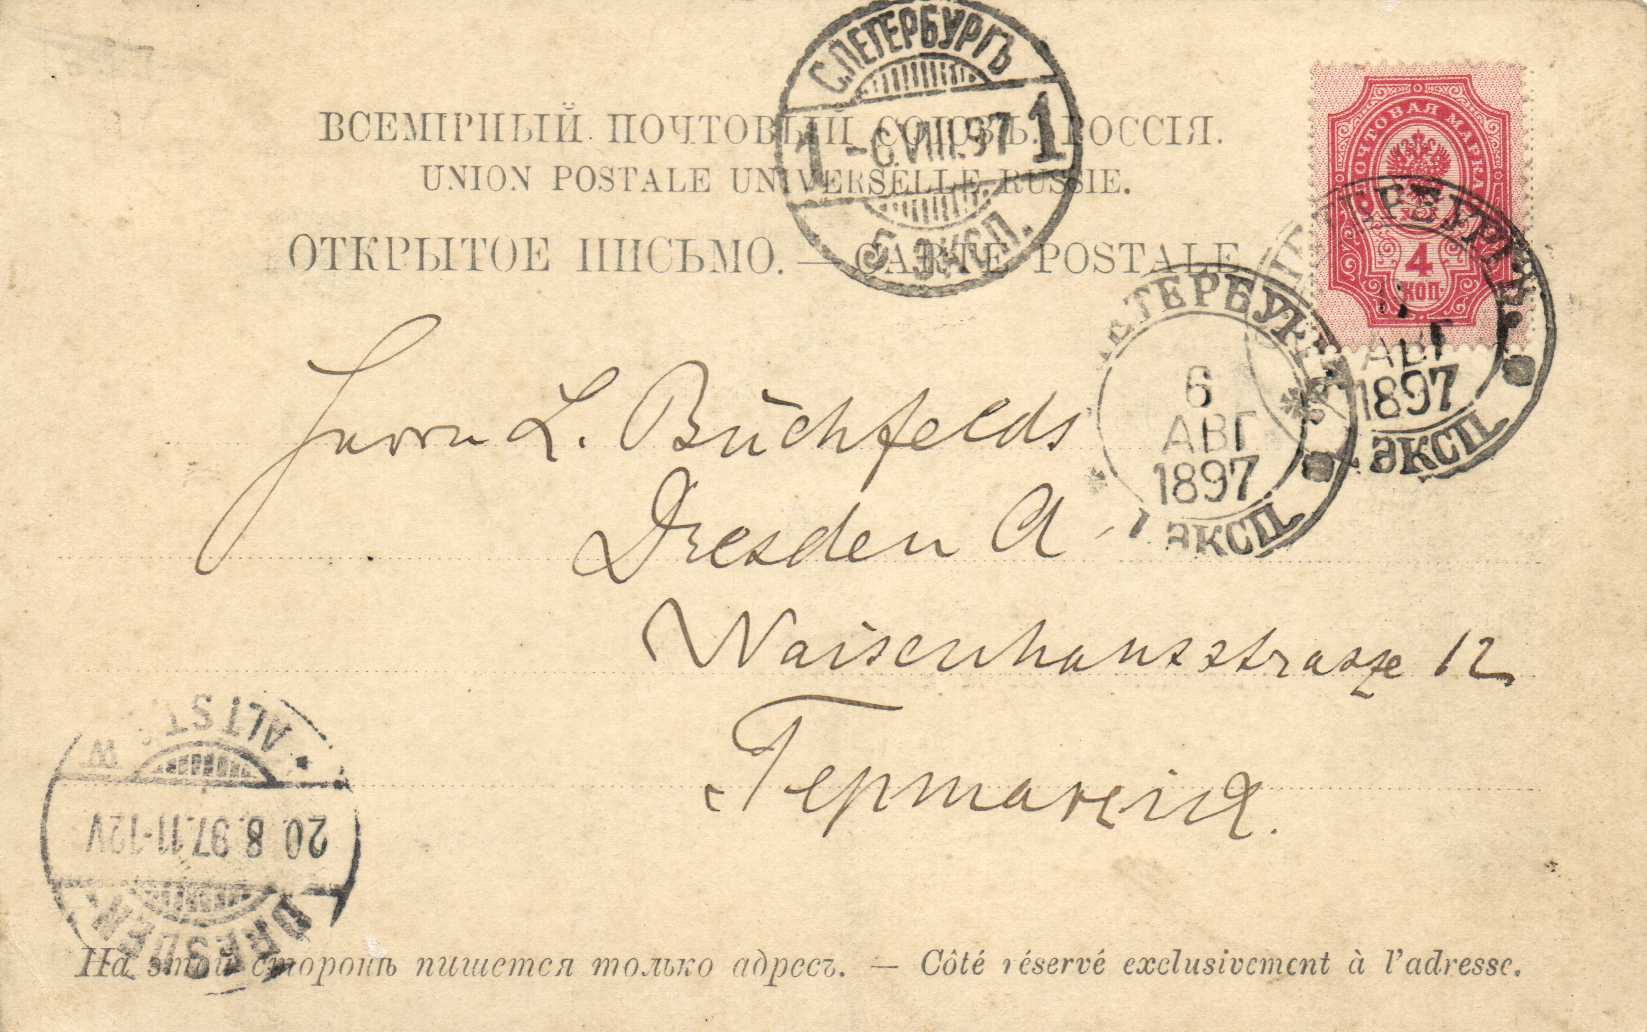 С.ПЕТЕРБУРГЪ
1 -6.VIII.97 1
5 ЭКСП.
ВСЕМІРНЫЙ ПОЧТОВЫЙ СОЮЗЪ. РОССІЯ.
UNION POSTALE UNIVERSELLE. RUSSIE.
ОТКРЫТОЕ ПИСЬМО. — CARTE POSTALE
ПОЧТОВАЯ МАРКА
4
КОП.
ПЕТЕРБУРГЪ
АВГ
1897
ЭКСП.
ПЕТЕРБУРГЪ
6
АВГ
1897
1 ЭКСП.
Herrn L. Büchfelds
Dresden A
Waisenhausstrasse 12
Германія.
DRESDEN
20. 8. 97. 11-12V
* ALTST. W
На этой сторонѣ пишется только адресъ. — Côté réservé exclusivement à l'adresse.